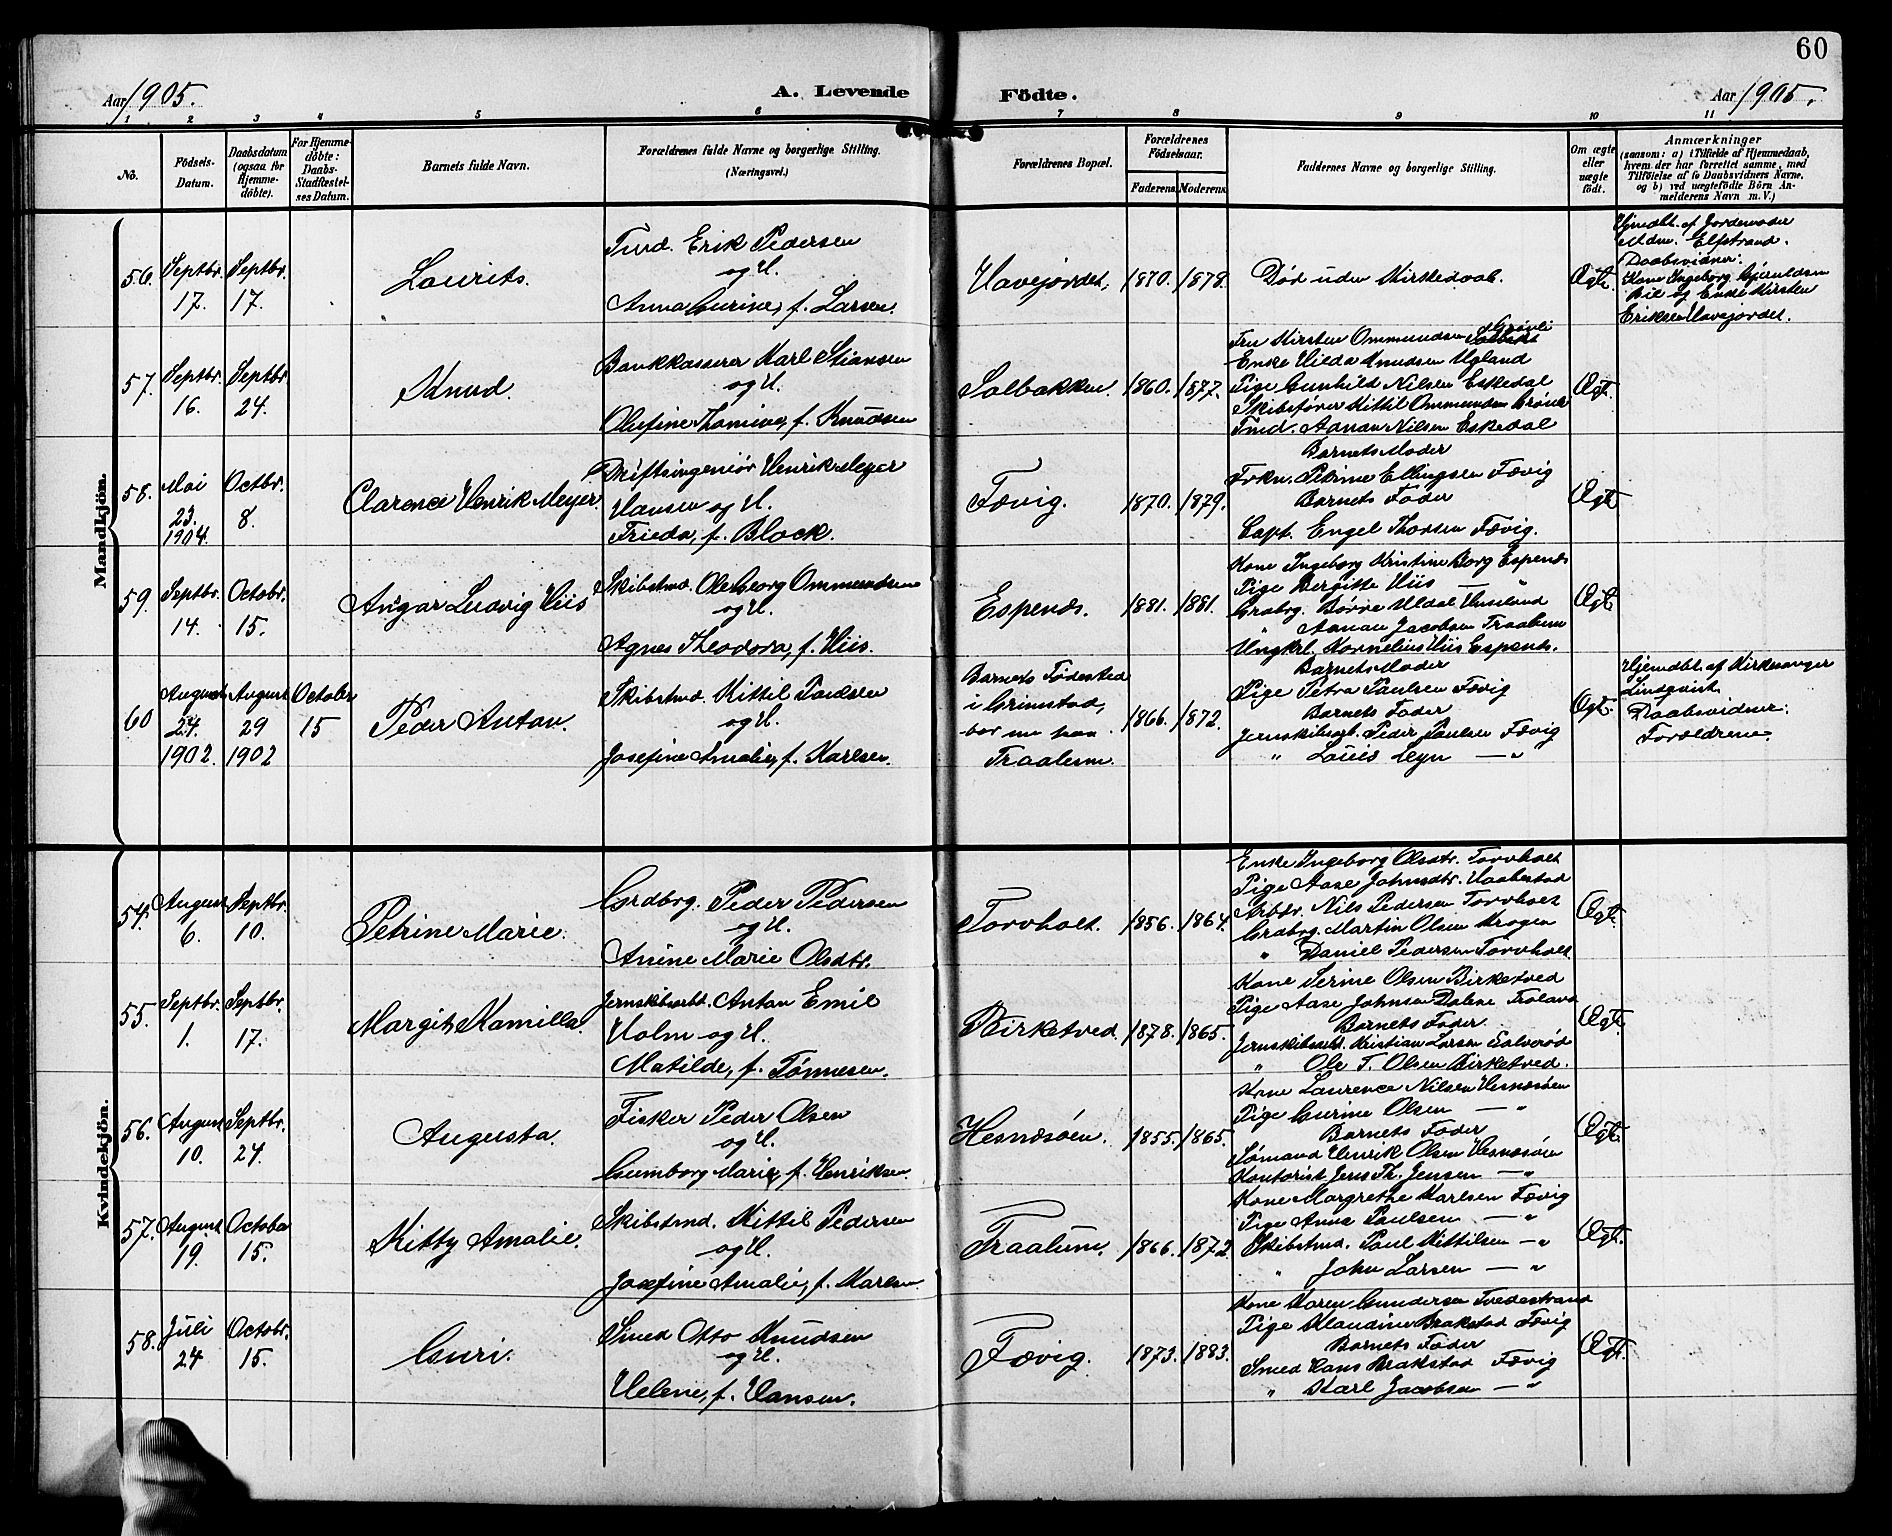 60
Aar 1905.
A. Levende Födte.
Aar 1905.
1 2 3 4 5 6 7 8 9 10 11
No.
Födsels-
Datum.
Daabsdatum
(ogsaa for
Hjemme-
döbte).
For Hjemme-
döbte:
Daabs-
Stadfæstel-
ses Datum.
Barnets fulde Navn.
Forældrenes fulde Navne og borgerlige Stilling.
(Næringsvei.)
Forældrenes Bopæl.
Forældrenes
Födselsaar.
Faderens.
Moderens.
Faddernes Navne og borgerlige Stilling.
Om ægte
eller
uægte
födt.
Anmærkninger
(saasom: a) i Tilfælde af Hjemmedaab,
hvem der har forrettet samme, med
Tilföielse af to Daabsvidners Navne,
og b) ved uægtefödte Börn An-
melderens Navn m. V.)
Mandkjön.
56.
Septbr.
17.
Septbr.
17.
Laurits.
Tmd. Erik Pedersen
og H.
Anna Gurine, f. Larsen.
Havejordet,
1870.
1878.
Död uden Kirkedaab.
Ægte
Hjemdbt. af Jordemoder
Mdm. Elfstrand.
Daabsvidner:
Kone Ingeborg Gjeruldsen
Bie og Enke Kirsten
Eriksen Havejordet.
57.
Septbr.
16.
Septbr.
24.
Knud.
Bankkasserer Karl Stiansen
og H.
Olufine Thomine, f. Knudsen
Solbakken.
1860.
1877.
Fru Kirsten Ommundsen Grönli
Enke Hilda Knudsen Ugland
Pige Gunhild Nilsen Eskedal
Skibsförer Kittil Ommundsen Grönli
Tmd. Adnan Nilsen Eskedal
Ægt.
58.
Mai
23.
1904.
Octbr.
8.
Clarence Henrik Meyer.
Driftsingeniör Henrik Meyer
Hansen og H.
Frieda, f. Block.
Fævig.
1870.
1879.
Barnets Moder
Frkn. Petrine Ellingsen Fævig
Barnets Fader
Capt. Engel Thorsen Fævig.
Ægt
59.
Septbr.
14.
Octobr.
15.
Angar Ludvig Hiis
Skibstmd. Ole Georg Ommundsen
og H.
Agnes Theodora, f. Hiis.
Espenæs.
1881.
1881.
Kone Ingeborg Kristine Borg Espenæs
Pige Bergitte Hiis — "
Grdbrg. Börre Uldal Husland
" Adnan Jacobsen Traalum
Ungkrl. Kornelius Hiis Espenæs.
Ægt
60
August
24.
1902.
August
29
1902
October
15
Peder Antan.
Skibstmd. Kittil Paulsen
og H.
Josefine Amalie, f. Karlsen.
Barnets Födested
i Grimstad,
bor nu paa
Traalum.
1866.
1872.
Barnets Moder
Pige Petra Paulsen Fævig
Barnets Fader
Jernskibsarb. Peder Paulsen Fævig
" Louis Leyn — "
Ægt.
Hjemdbt. af Kirkesanger
Lindqvist.
Daabsvidner:
Forældrene.
Kvindekjön.
54.
August
6.
Septbr.
10.
Petrine Marie.
Grdbrg. Peder Pedersen
og H.
Anine Marie Olsdtr.
Torvholt.
1856.
1864.
Enke Ingeborg Olsdtr. Torvholt
Pige Aase Johnsdtr. Haabestad
Arbdr. Nils Pedersen Torvholt
Grdbrg. Martin Olsen Krogen
" Daniel Pedersen Torvholt
Ægt.
55.
Septbr.
1.
Septbr.
17.
Margit Kamilla.
Jernskibsarbd. Antan Emil
Holm og H.
Matilde, f. Tönnesen.
Birketved.
1878.
1865.
Kone Serine Olsen Birketved
Pige Aase Johnsen Dalene Froland
Barnets Fader
Jernskibsarbd. Kristian Larsen
" Ole T. Olsen Birketved.
Ægt.
56.
August
10.
Septbr.
24.
Augusta.
Fisker Peder Olsen
og H.
Gumborg Marie, f. Henriksen.
Hesnæsöen.
1855.
1865.
Kone Laurence Nilsen Hesnæsöen
Pige Gurine Olsen — "
Barnets Fader
Sömand Henrik Olsen Hesnæsöen
Kontorist Jens Th. Jensen — "
Ægt.
57.
August
19.
October
15.
Kitty Amalie.
Skibstmd. Kittil Pedersen
og H.
Josefine Amalie, f. Karlsen.
Traalum.
1866.
1872
Kone Margrethe Karlsen Fævig
Pige Anna Paulsen — "
Skibstmd. Paul Kittilsen — "
" John Larsen — "
Ægt.
58.
Juli
24
Octobr.
15.
Guri.
Smed Otto Knudsen
og H.
Helene, f. Hansen.
Fævig.
1873.
1883.
Kone Karen Gundersen Tvedestrand
Pige Klaudine Brakstad Fævig
Barnets Fader
Smed Hans Brakstad Fævig
" Karl Jacobsen — "
Ægt.